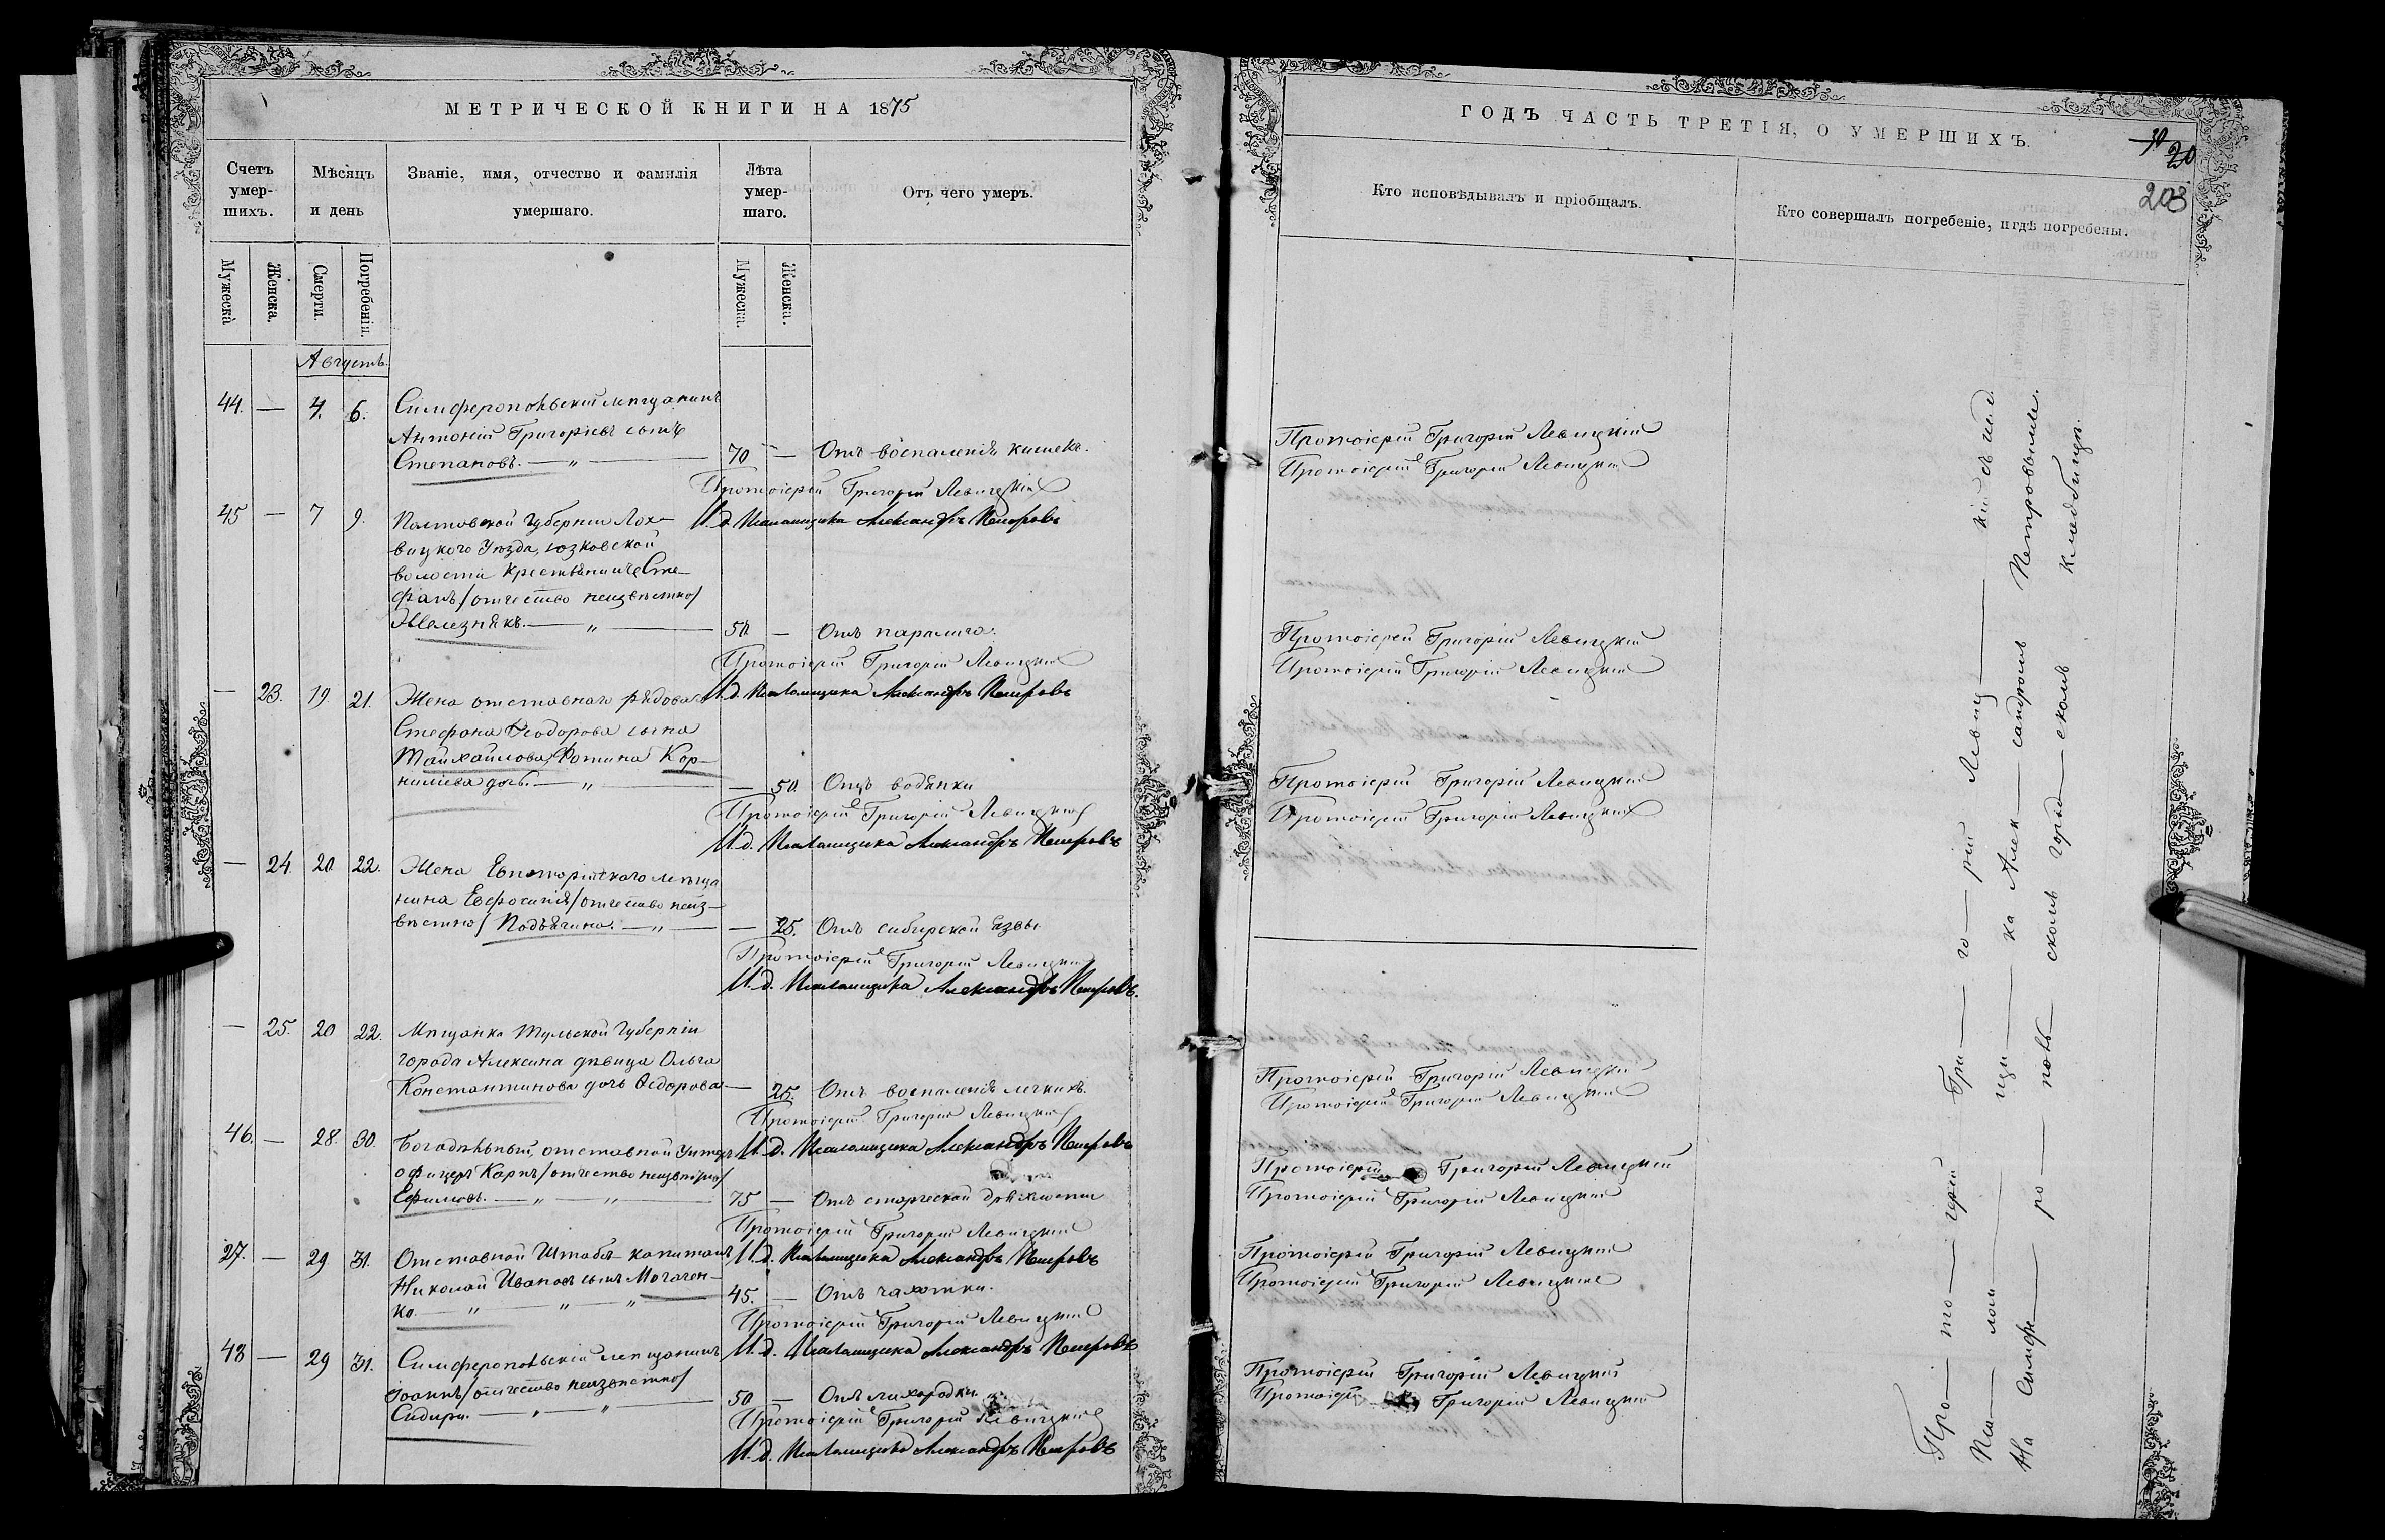 МЕТРИЧЕСКОЙ КНИГИ НА 1875
Счетъ умер-шихъ.
Мѣсяцъ и день
Званіе, имя, отчество и фамилія умершаго.
Лѣта умер-шаго.
Отъ чего умеръ.
Мужеска
Женска.
Смерти.
Погребенія.
Мужеска.
Женска.
Августъ.
44. — 4. 6. Симферопольскій мѣщанинъ
Антоній Григоріевъ сынъ
Степановъ. — „ — 70 — Отъ воспаленія кишекъ.
Протоіерей Григорій Левицкій
И.д. Псаломщика Александръ Петровъ
45 — 7 9. Полтавской Губерніи Лох-
вицкого Уѣзда, юзковской
волости крестьянинъ Сте-
фанъ /отчество неизвѣстно/
Железнякъ. — „ — 50. — Отъ паралича.
Протоіерей Григорій Левицкій
И.д. Псаломщика Александръ Петровъ
— 23. 19. 21. Жена отставнаго рядоваго
Стефана Ѳеодорова сына
Михайлова, Фотина Кор-
ниліева дочь. — „ — — 50. Отъ водянки
Протоіерей Григорій Левицкій
И.д. Псаломщика Александръ Петровъ
— 24. 20. 22. Жена Евпаторійскаго мѣща
нина Евфросинія /отчество неиз-
вѣстно/ Подъячина. — „ — — 25. Отъ сибирской язвы.
Протоіерей Григорій Левицкій
И.д. Псаломщика Александръ Петровъ.
— 25. 20 22. Мѣщанка Тульской Губерніи
города Алексина дѣвица Ольга
Константинова дочь Ѳедорова — — 25. Отъ воспаленія легкихъ.
Протоіерей Григорій Левицкій
И.д. Псаломщика Александръ Петровъ
46. — 28. 30. Богадѣльный, отставной Унтеръ
офицеръ Карпъ /отчество неизвѣстно/
Ефимовъ. — „ — „ — 75 — Отъ старческой дряхлости
Протоіерей Григорій Левицкій
И.д. Псаломщика Александръ Петровъ
27. — 29 31. Отставной Штабсъ-капитанъ
Николай Ивановъ сынъ Могачен-
ко. — „ — „ — „ 45. — Отъ чахотки.
Протоіерей Григорій Левицкій
И.д. Псаломщика Александръ Петровъ
48 — 29 31. Симферопольскій мѣщанинъ
Іоаннъ /отчество неизвѣстно/
Сидири. — „ — „ — 50 — Отъ лихорадки.
Протоіерей Григорій Левицкій
И.д. Псаломщика Александръ Петровъ
ГОДЪ ЧАСТЬ ТРЕТІЯ, О УМЕРШИХЪ.
20
203
Кто исповѣдывалъ и пріобщалъ.
Кто совершалъ погребеніе, и гдѣ погребены.
Протоіерей Григорій Левицкій
Протоіерей Григорій Левицкій
Протоіерей Григорій Левицкій
Протоіерей Григорій Левицкій
Протоіерей Григорій Левицкій
Протоіерей Григорій Левицкій
Протоіерей Григорій Левицкій
Протоіерей Григорій Левицкій
Протоіерей Григорій Левицкій
Протоіерей Григорій Левицкій
Протоіерей Григорій Левицкій
Протоіерей Григорій Левицкій
Протоіерей Григорій Левицкій
Протоіерей Григорій Левицкій
Про — то — іерей — Гри — го — рій Левиц — кій съ и.д.
Пса — лом — щи — ка Алек — сандромъ Петровымъ.
На Симфе — ро — поль — скомъ город — скомъ кладбищѣ.